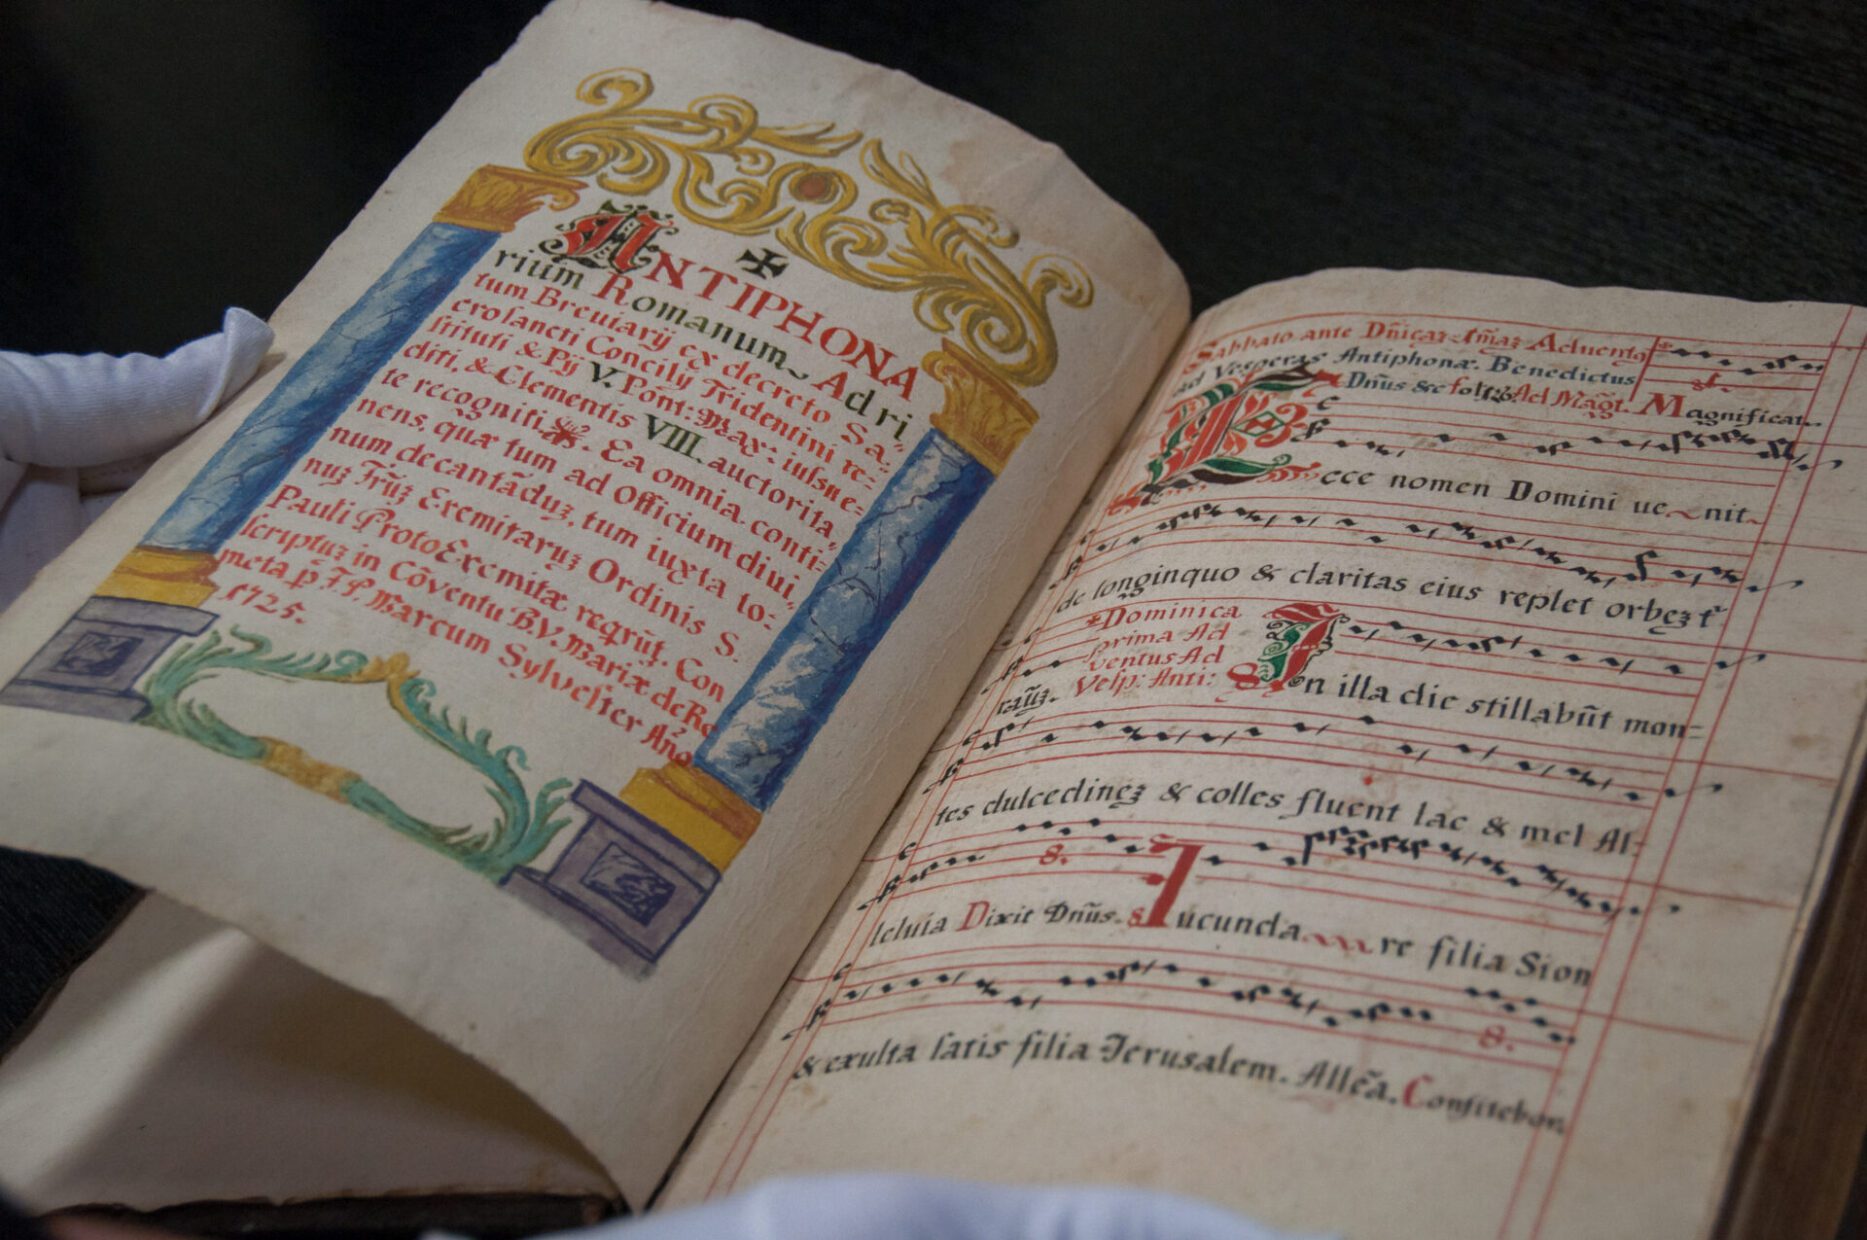 ANTIPHONA
rium Romanum Ad ri
tum Breuiarÿ ex decreto Sa-
crosancti Concilÿ Tridentini re-
stituti & Pÿ V. Pont: Max: iussu e-
diti, & Clementis VIII. auctorita
te recogniti. Ea omnia conti-
nens, quæ tum ad Officium diui
num decantãduʒ, tum iuxta to-
nuʒ Fr̃uʒ Eremitaruʒ Ordinis S.
Pauli ProtoEremitæ reqrũt. Con
scriptuʒ in Cõventu B.V. Mariæ de Re
meta p. F.P. Marcum Sylvester Año
1725.
Sabbato ante Dñicaʒ Aduentq
ad Vesperas Antiphonæ. Benedictus
Dñus &c Ad Magt. Magnificat.
Ecce nomen Domini ue nit
de longinquo & claritas eius replet orbeʒ t
Dominica
prima Ad
ventus Ad
Vesp: Anti:
raũʒ. In illa die stillabũt mon=
tes dulcedineʒ & colles fluent lac & mel Al=
8.
leluia Dixit Dñus. Iucunda re filia Sion
8.
& exulta satis filia Jerusalem. Allẽa. Confitebon